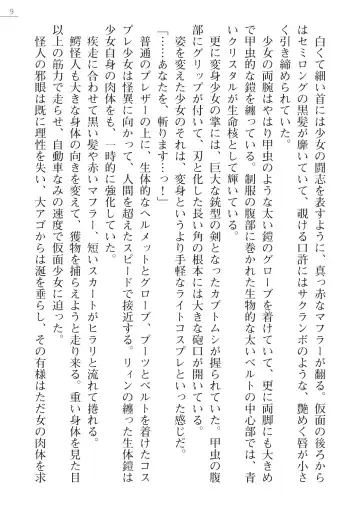 9
白くて細い首には少女の闘志を表すように、真っ赤なマフラーが翻る。仮面の後ろから
はセミロングの黒髪が靡いていて、覗ける口許にはサクランボのような、艶めく唇が小さ
く引き締められていた。
少女の両腕はやはり甲虫のような太い鎧のグローブを着けていて、更に両脚にも大きめ
で甲虫的な鎧を纏っている。制服の腹部に巻かれた生物的な太いベルトの中心部では、青
いクリスタルが生命核として輝いている。
更に変身少女の掌には、巨大な銃型の剣となったカブトムシが握られていた。甲虫の腹
部にグリップが付いて、刃と化した長い角の根本には大きな砲口が開いている。
姿を変えた少女のそれは、変身というより手軽なライトコスプレといった感じだ。
「……あなたを、斬ります……っ！」
普通のブレザーの上に、生体的なヘルメットとグローブ、ブーツとベルトを着けたコス
プレ少女は怪異に向かって、人間を超えたスピードで接近する。リィンの纏った生体鎧は
少女自身の肉体をも、一時的に強化していた。
疾走に合わせて黒い髪や赤いマフラー、短いスカートがヒラリと流れて捲れる。
鰐怪人も大きな身体の向きを変えて、獲物を捕らえようと走り来る。重い身体を見た目
以上の筋力で走らせ、自動車なみの速度で仮面少女に迫った。
怪人の邪眼は既に理性を失い、大アゴからは涎を垂らし、その有様はただ女の肉体を求